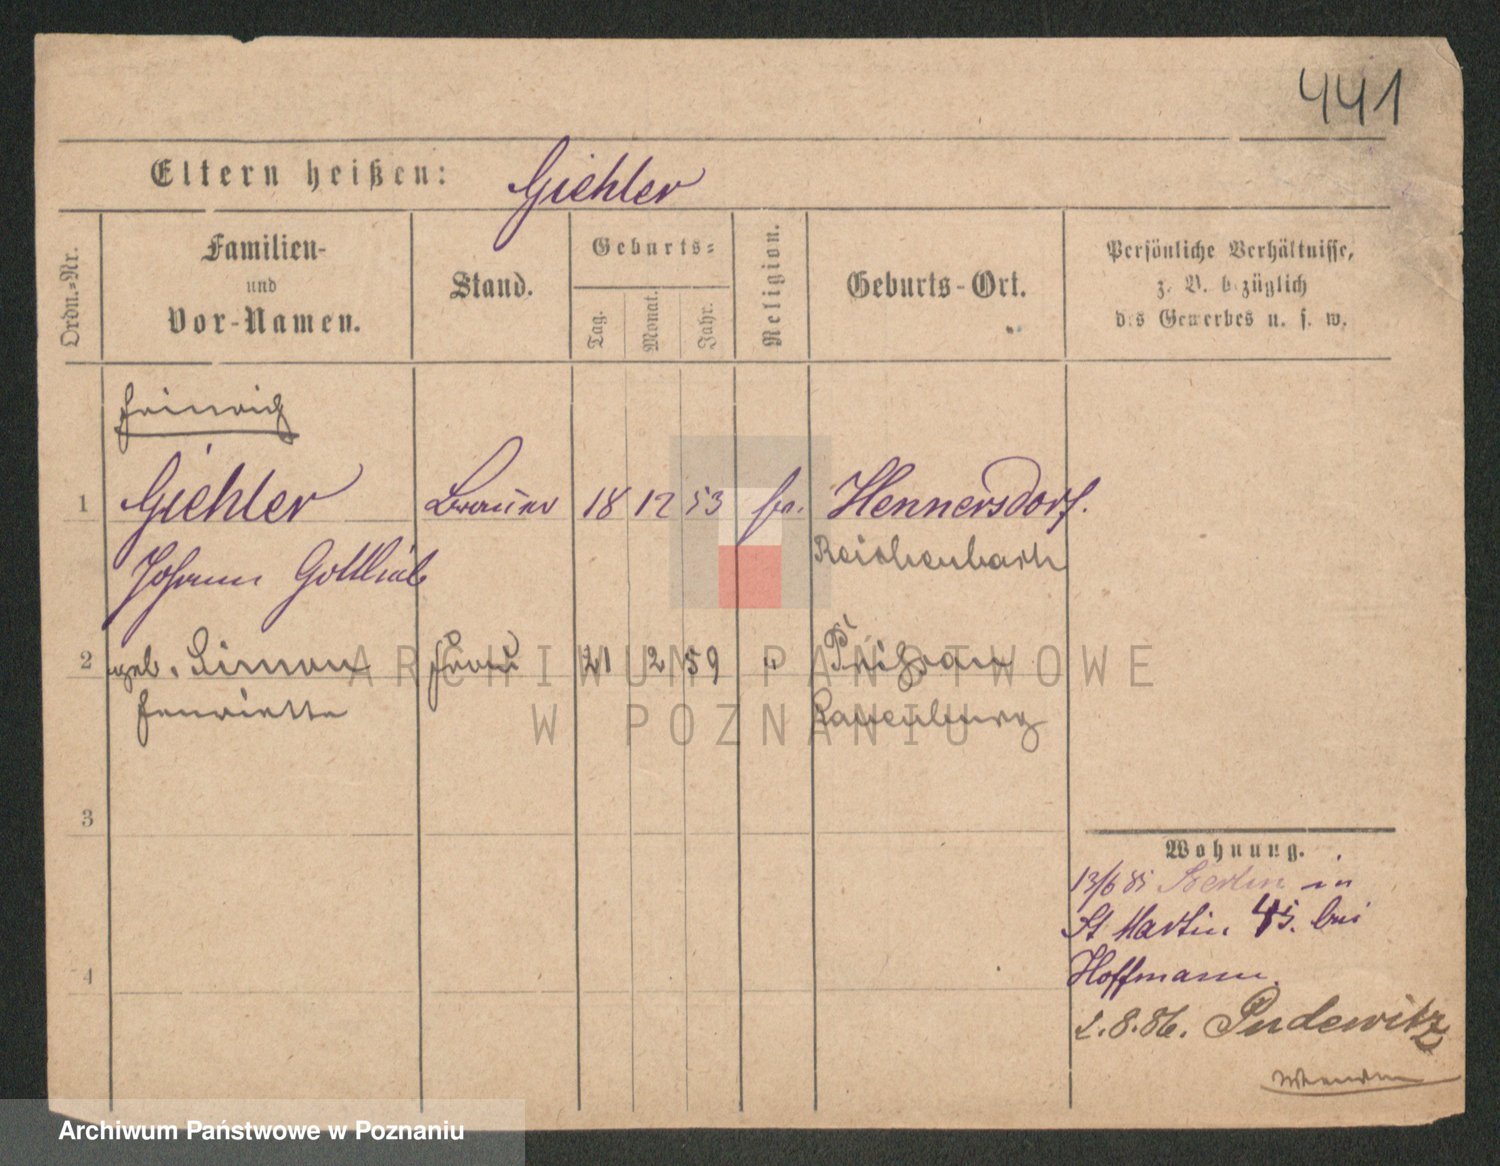 441
Eltern heißen: Giehler
Ordn.-Nr.
Familien-
und
Vor-Namen.
Stand.
Geburts-
Tag.
Monat.
Jahr.
Religion.
Geburts-Ort.
Persönliche Verhältnisse,
z. B. bezüglich
des Gewerbes u. s. w.
Heinrich
1 Giehler Brauer 18 12 53 Hennersdorf.
Johann Gottlieb Reichenbach
2 geb. Simon Frau 21 2 59 "
Henriette
3
4
Wohnung.
13/6 85 Berlin in
St Martin 45. bei
Hoffmann.
2.8.86. Pudewitz
ARCHIWUM PAŃSTWOWE
W POZNANIU
Archiwum Państwowe w Poznaniu